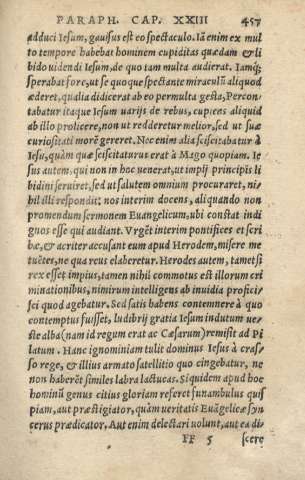 PARAPH. CAP. XXIII 457
adduci Iesum, gauisus est eo spectaculo. Iã enim ex mul
to tempore habebat hominem cupiditas quædam & li
bido uidendi Iesum, de quo tam multa audierat. Iamq́;
sperabat fore, ut se quoque spectante miraculũ aliquod
æderet, qualia didicerat ab eo permulta gesta. Percon
tabatur itaque Iesum uarijs de rebus, cupiens aliquid
ab illo prolicere, non ut redderetur melior, sed ut suæ
curiositati morẽ gereret. Nec enim alia sciscitabatur à
Iesu, quàm quæ sciscitaturus erat à Mago quopiam. Ie
sus autem, qui non in hoc uenerat, ut impij principis li
bidini seruiret, sed ut salutem omnium procuraret, ni
hil illi respondit: nos interim docens, aliquando non
promendum sermonem Euangelicum, ubi constat indi
gnos esse qui audiant. Vrgẽt interim pontifices et scri
bæ, & acriter accusant eum apud Herodem, misere me
tuẽtes, ne qua reus elaberetur. Herodes autem, tametsi
rex esset impius, tamen nihil commotus est illorum cri
minationibus, nimirum intelligens ab inuidia profici/
sci quod agebatur. Sed satis habens contemnere à quo
contemptus fuisset, ludibrij gratia Iesum indutum ue/
ste alba (nam id regum erat ac Cæsarum) remisit ad Pi
latum. Hanc ignominiam tulit dominus Iesus à cras/
so rege, & illius armato satellitio quo cingebatur, ne
non haberẽt similes labra lactucas. Siquidem apud hoc
hominũ genus citius gloriam referet funambulus quis
piam, aut præstigiator, quàm ueritatis Euãgelicæ syn
cerus prædicator. Aut enim delectari uolunt, aut ea di/
FF 5 scere